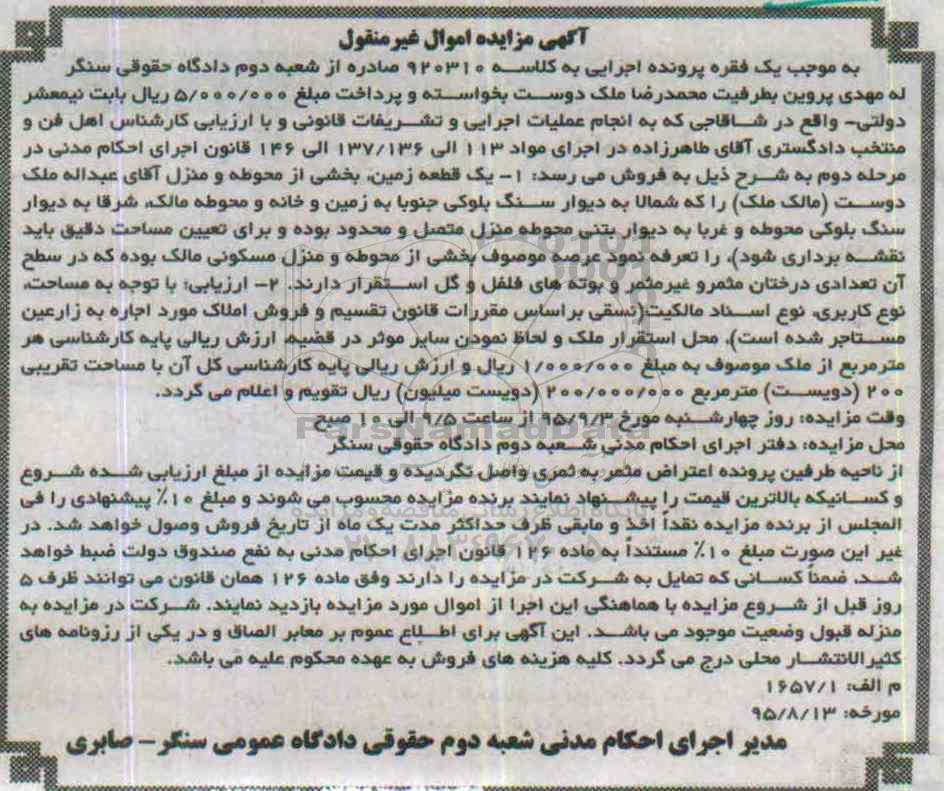 آگهی مزایده اموال غیرمنقول
به موجب یک فقره پرونده اجرایی به کلاسه ۹۲۰۳۱۰ صادره از شعبه دوم دادگاه حقوقی سنگر
له مهدی پروین بطرفیت محمدرضا ملک دوست بخواسته و پرداخت مبلغ ۵/۰۰۰/۰۰۰ ریال بابت نیمعشر
دولتی- واقع در شاقاجی که به انجام عملیات اجرایی و تشریفات قانونی و با ارزیابی کارشناس اهل فن و
منتخب دادگستری آقای طاهرزاده در اجرای مواد ۱۱۳ الی ۱۳۷/۱۳۶ الی ۱۴۶ قانون اجرای احکام مدنی در
مرحله دوم به شرح ذیل به فروش می رسد: ۱- یک قطعه زمین، بخشی از محوطه و منزل آقای عبداله ملک
دوست (مالک ملک) را که شمالا به دیوار سنگ بلوکی جنوبا به زمین و خانه و محوطه مالک، شرقا به دیوار
سنگ بلوکی محوطه و غربا به دیوار بتنی محوطه منزل متصل و محدود بوده و برای تعیین مساحت دقیق باید
نقشه برداری شود)، را تعرفه نمود عرصه موصوف بخشی از محوطه و منزل مسکونی مالک بوده که در سطح
آن تعدادی درختان مثمرو غیرمثمر و بوته های فلفل و گل استقرار دارند. ۲- ارزیابی: با توجه به مساحت،
نوع کاربری، نوع اسناد مالکیت(نسقی براساس مقررات قانون تقسیم و فروش املاک مورد اجاره به زارعین
مستاجر شده است)، محل استقرار ملک و لحاظ نمودن سایر موثر در قضیه، ارزش ریالی پایه کارشناسی هر
مترمربع از ملک موصوف به مبلغ ۱/۰۰۰/۰۰۰ ریال و ارزش ریالی پایه کارشناسی کل آن با مساحت تقریبی
۲۰۰ (دویست) مترمربع ۲۰۰/۰۰۰/۰۰۰ (دویست میلیون) ریال تقویم و اعلام می گردد.
وقت مزایده: روز چهارشنبه مورخ ۹۵/۹/۳ از ساعت ۹/۵ الی ۱۰ صبح
محل مزایده: دفتر اجرای احکام مدنی شعبه دوم دادگاه حقوقی سنگر
از ناحیه طرفین پرونده اعتراض مثمر به ثمری واصل نگردیده و قیمت مزایده از مبلغ ارزیابی شده شروع
و کسانیکه بالاترین قیمت را پیشنهاد نمایند برنده مزایده محسوب می شوند و مبلغ ۱۰٪ پیشنهادی را فی
المجلس از برنده مزایده نقداً اخذ و مابقی ظرف حداکثر مدت یک ماه از تاریخ فروش وصول خواهد شد. در
غیر این صورت مبلغ ۱۰٪ مستنداً به ماده ۱۲۶ قانون اجرای احکام مدنی به نفع صندوق دولت ضبط خواهد
شد. ضمناً کسانی که تمایل به شرکت در مزایده را دارند وفق ماده ۱۲۶ همان قانون می توانند ظرف ۵
روز قبل از شروع مزایده با هماهنگی این اجرا از اموال مورد مزایده بازدید نمایند. شرکت در مزایده به
منزله قبول وضعیت موجود می باشد. این آگهی برای اطلاع عموم بر معابر الصاق و در یکی از رزونامه های
کثیرالانتشار محلی درج می گردد. کلیه هزینه های فروش به عهده محکوم علیه می باشد.
م الف: ۱۶۵۷/۱
مورخه: ۹۵/۸/۱۳
مدیر اجرای احکام مدنی شعبه دوم حقوقی دادگاه عمومی سنگر- صابری